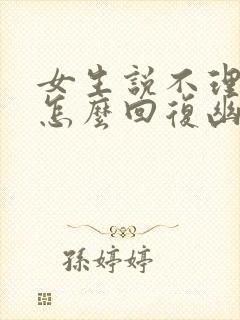 女生説不理
怎麽回復幽
孫婷婷